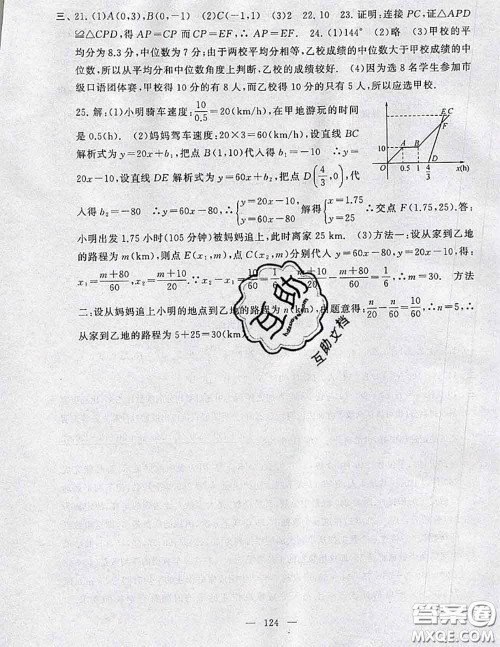 三、21. (1)A(0,3),B(0,-1) (2)C(-1,1) (3)2 22. 10 23. 证明:连接 PC,证△APD
≌△CPD,得 AP=CP 而 CP=EF,∴AP=EF 24. (1)144° (2)略 (3)甲校的平
均分为 8.3 分,中位数为 7 分;由于两校平均分相等,乙校成绩的中位数大于甲校成绩的中
位数,所以从平均分和中位数角度上判断,乙校的成绩较好. (4)因为选 8 名学生参加市
级口语团体赛,甲校得 10 分的有 8 人,而乙校得 10 分的只有 5 人,所以应选甲校.
25. 解:(1)小明骑车速度:10/0.5=20(km/h),在甲地游玩的时间
是 0.5(h). (2)妈妈驾车速度:20×3=60(km/h),设直线 BC
解析式为 y=20x+b₁,把点 B(1,10)代入得 b₁=-10 ∴y=
20x-10,设直线 DE 解析式为 y=60x+b₂,把点 D(4/3,0),代
入得 b₂=-80 ∴y=60x-80,∴{y=20x-10, y=60x-80 解得{x=1.75 y=25 ∴交点 F(1.75,25).答:
小明出发 1.75 小时(105 分钟)被妈妈追上,此时离家 25 km. (3)方法一:设从家到乙地
的路程为 m(km),则点 E(x₁,m),点 C(x₂,m)分别代人 y=60x-80,y=20x-10,得:
x₁=(m+80)/60,x₂=(m+10)/20 ∵x₂-x₁=10/60=1/6 ∴(m+10)/20-(m+80)/60=1/6 ∴m=30. 方法
二:设从妈妈追上小明的地点到乙地的路程为 n(km),由题意得:n/20-n/60=10/60,∴n=5,∴
从家到乙地的路程为 5+25=30(km).
10
A
B
C
E
F
D
O
0.5
1
4/3
x(h)
互助
互助文档
— 124 —
答案圈
MXQE.COM